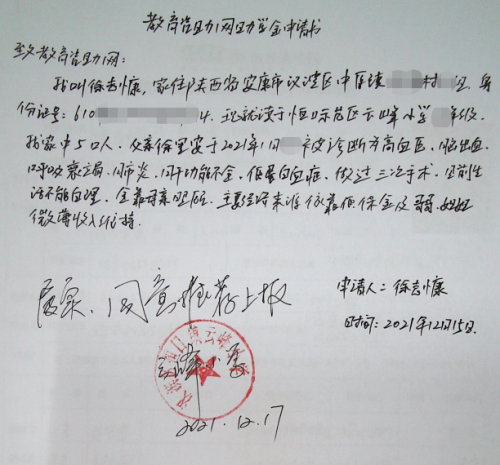 教育资助网助学金申请书
致教育资助网:
我叫徐吉慷,家住陕西省安康市汉滨区中原镇 村 组,身
份证号:610 4.现就读于恒口示范区云峰小学 年级.
我家中5口人.父亲徐里安于2021年1月 被诊断为高血压、脑出血、
呼吸衰竭、肺炎、肝功能不全、低蛋白血症、做过三次手术.目前生
活不能自理.全靠母亲照顾.主要经济来源依靠低保金及哥哥、姐姐
微薄收入维持.
申请人:徐吉慷
时间:2021年12月15日.
属实.同意推荐上报
云峰小学
2021.12.17